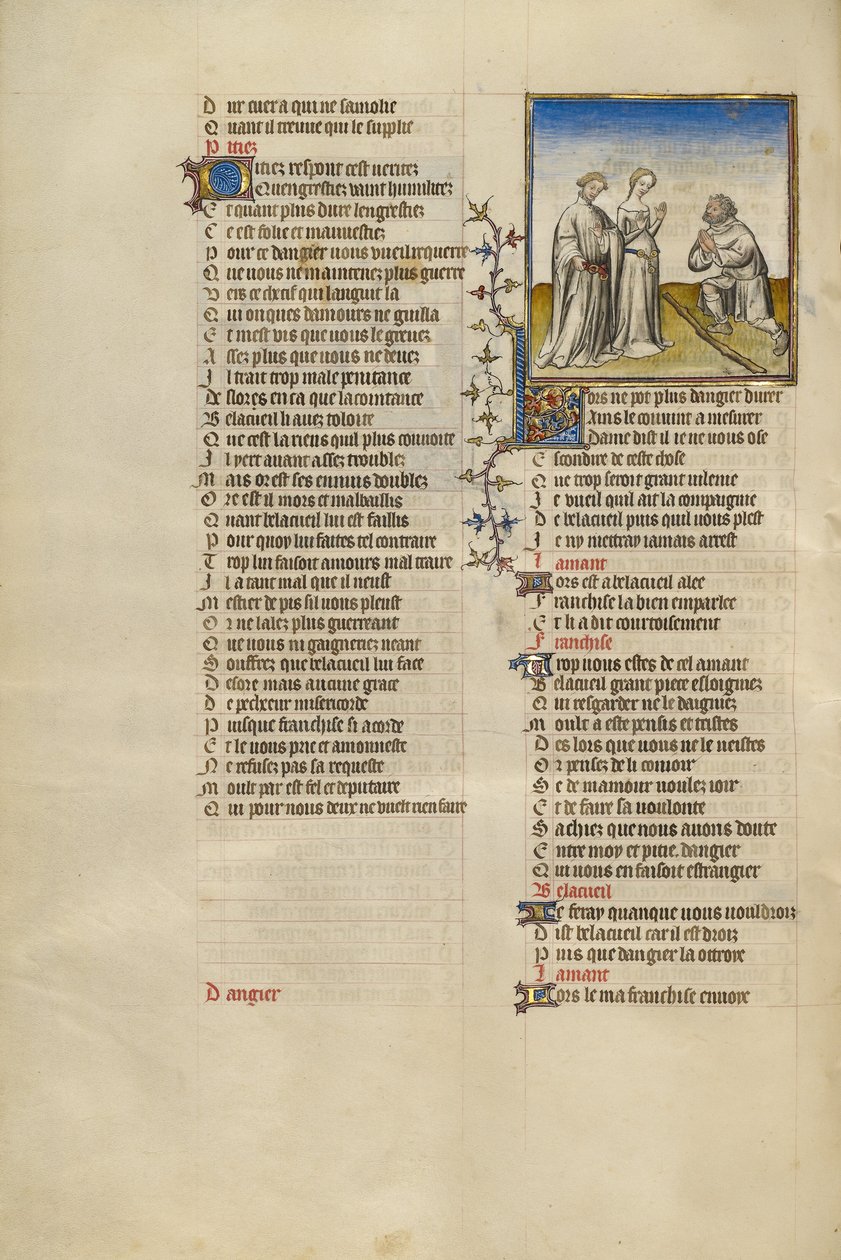 Dur cuer a qui ne samolie
Quant il treuue qui le supplie
Pitiez
Pitiez respont cest veritez
Quengrestiez vaint humilitez
Et quant plus dure lengrestiez
Ce est folie et mauuestiez
Pour ce dangier vous vueil requerre
Que vous ne maintenez plus guerre
Vers ce chetif qui languit la
Qui onques damours ne guilla
Et mest vis que vous le greuez
Assez plus que vous ne deuez
Il trait trop male penitance
Des lores en ca que lacointance
Belacueil li auez toloite
Que cest la riens quil plus couuoite
Il yert auant assez troublez
Mais or est ses ennuis doublez
Ore est il mors et malbaillis
Quant belacueil lui est faillis
Pour quoy lui faites tel contraire
Trop lui faisoit amours mal traire
Il a tant mal que il neust
Mestier de pis sil vous pleust
Or ne lalez plus guerreant
Que vous ni gaigneriez neant
Souffrez que belacueil lui face
Desore mais aucune grace
De pecheur misericorde
Puisque franchise si acorde
Et le vous prie et amonneste
Ne refusez pas sa requeste
Moult par est fel et deputaire
Qui pour nous deux ne vuelt rien faire
Dangier
Lors ne pot plus dangier durer
Ains le couuint a mesurer
Dame dist il ie ne vous ose
Escondire de ceste chose
Que trop seroit grant vilenie
Je vueil quil ait la compaignie
De belacueil puis quil vous plest
Je ny mettray iamais arrest
Lamant
Lors est a belacueil alee
Franchise la bien emparlee
Et li a dit courtoisement
Franchise
Trop vous estes de cel amant
Belacueil grant piece esloigniez
Qui resgarder ne le daigniez
Moult a este pensis et tristes
Des lors que vous ne le veistes
Or pensez de li conioir
Se de mamour voulez ioir
Et de faire sa voulonte
Sachiez que nous auons donte
Entre moy et pitie. dangier
Qui vous en faisoit estrangier
Belacueil
Je feray quanque vous vouldroiz
Dist belacueil car il est droiz
Puis que dangier la ottroye
Lamant
Lors le ma franchise enuoye